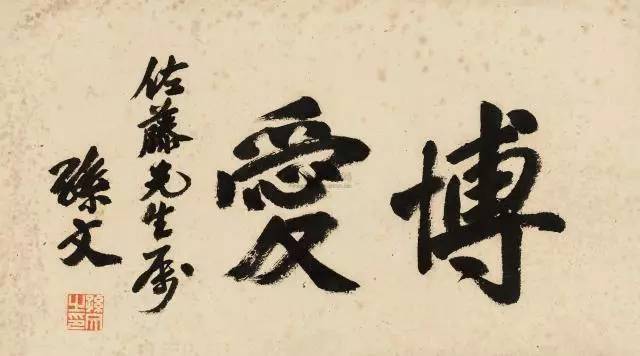 博愛
佐藤先生属
孫文
孫文之印